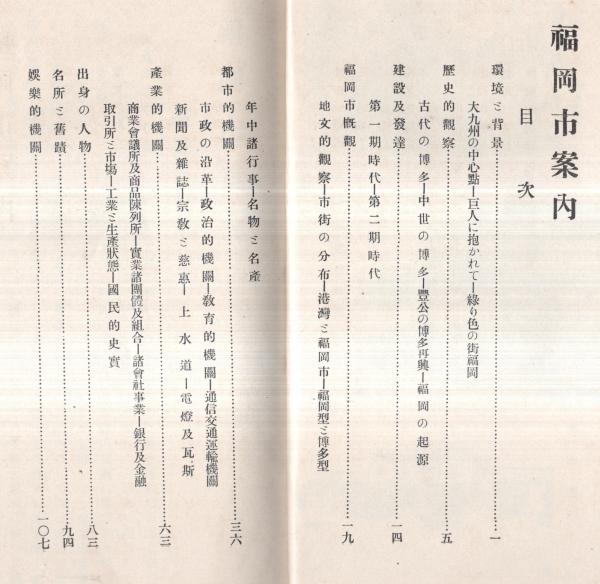 福岡市案內
目次
環境と背景……一
大九州の中心點―巨人に抱かれて―綠り色の街福岡
歷史的觀察……五
古代の博多―中世の博多―豐公の博多再興―福岡の起源
建設及發達……一四
第一期時代―第二期時代
福岡市槪觀……一九
地文的觀察―市街の分布―港灣と福岡市―福岡型と博多型
年中諸行事―名物と名產
都市的機關……三六
市政の沿革―政治的機關―敎育的機關―通信交通運輸機關
新聞及雜誌―宗敎と慈惠―上水道―電燈及瓦斯
產業的機關……六三
商業會議所及商品陳列所―實業諸團體及組合―諸會社事業―銀行及金融
取引所と市場―工業と生產狀態―國民的史實
出身の人物……八三
名所と舊蹟……九四
娛樂的機關……一〇七